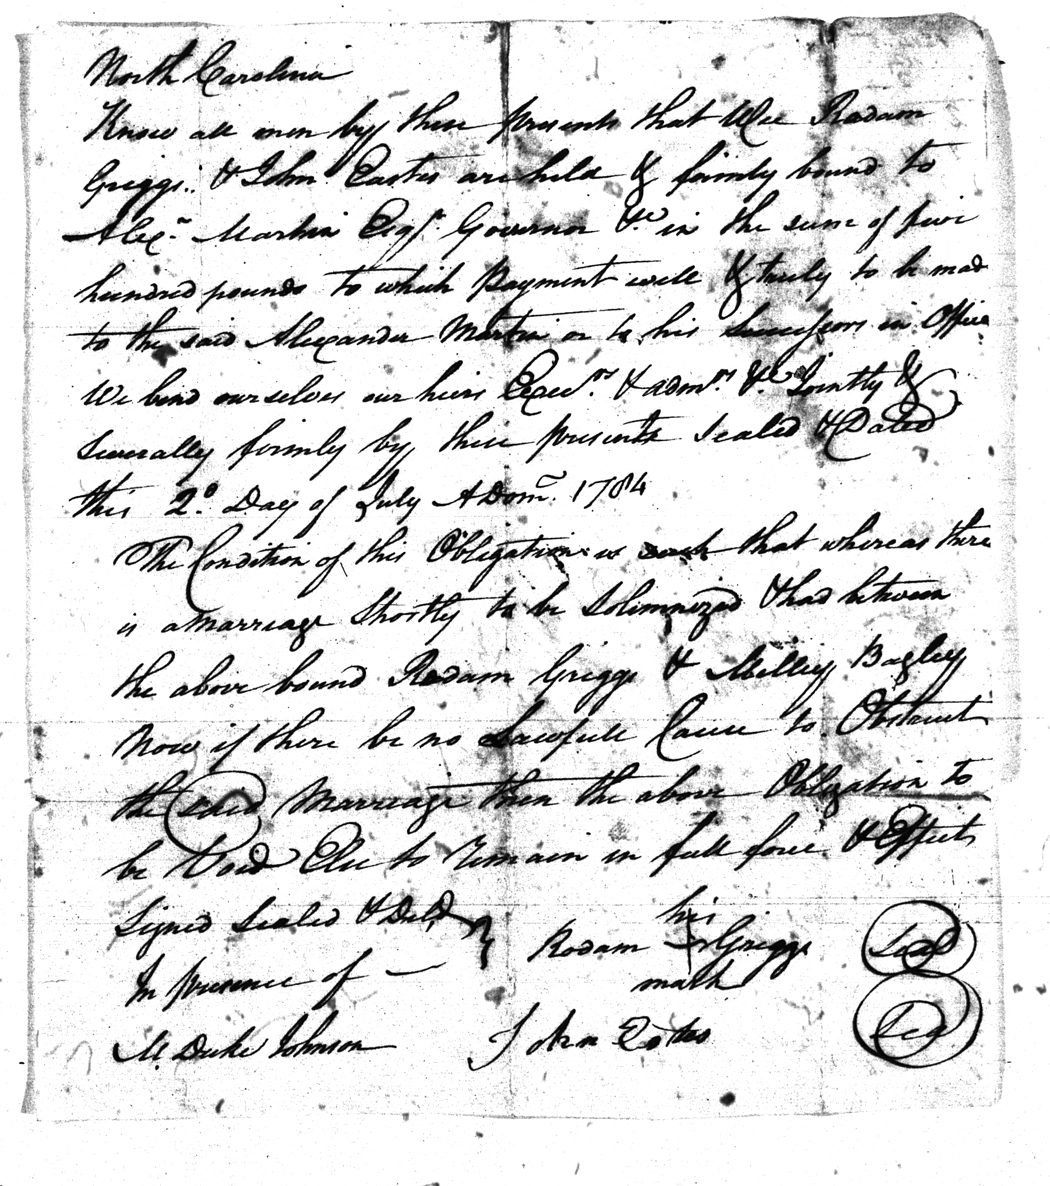 North Carolina
Know all men by these presents that Wee Rodam
Griggs & John Eastes are held & firmly bound to
Alexr. Martin Esqr. Governor &c. in the sum of five
hundred pounds to which Payment well & truly to be mad
to the said Alexander Martin or to his Successors in Office
We bind ourselves our heirs Execrs. & admrs. &c. Jointly &
Severally firmly by these presents Sealed & Dated
this 2d. Day of July ADom. 1784
The Condition of this Obligation is such that whereas there
is a Marriage Shortly to be Solemnized & had between
the above bound Rodam Griggs & Milley Bagley
Now if there be no Lawfull Cause to Obstruct
the said Marriage then the above Obligation to
be Void Else to remain in full force & Effect
Signed Sealed & Deld.
In presence of —
his
Rodam + Griggs Seal
mark
M. Duke Johnson John Estes Seal